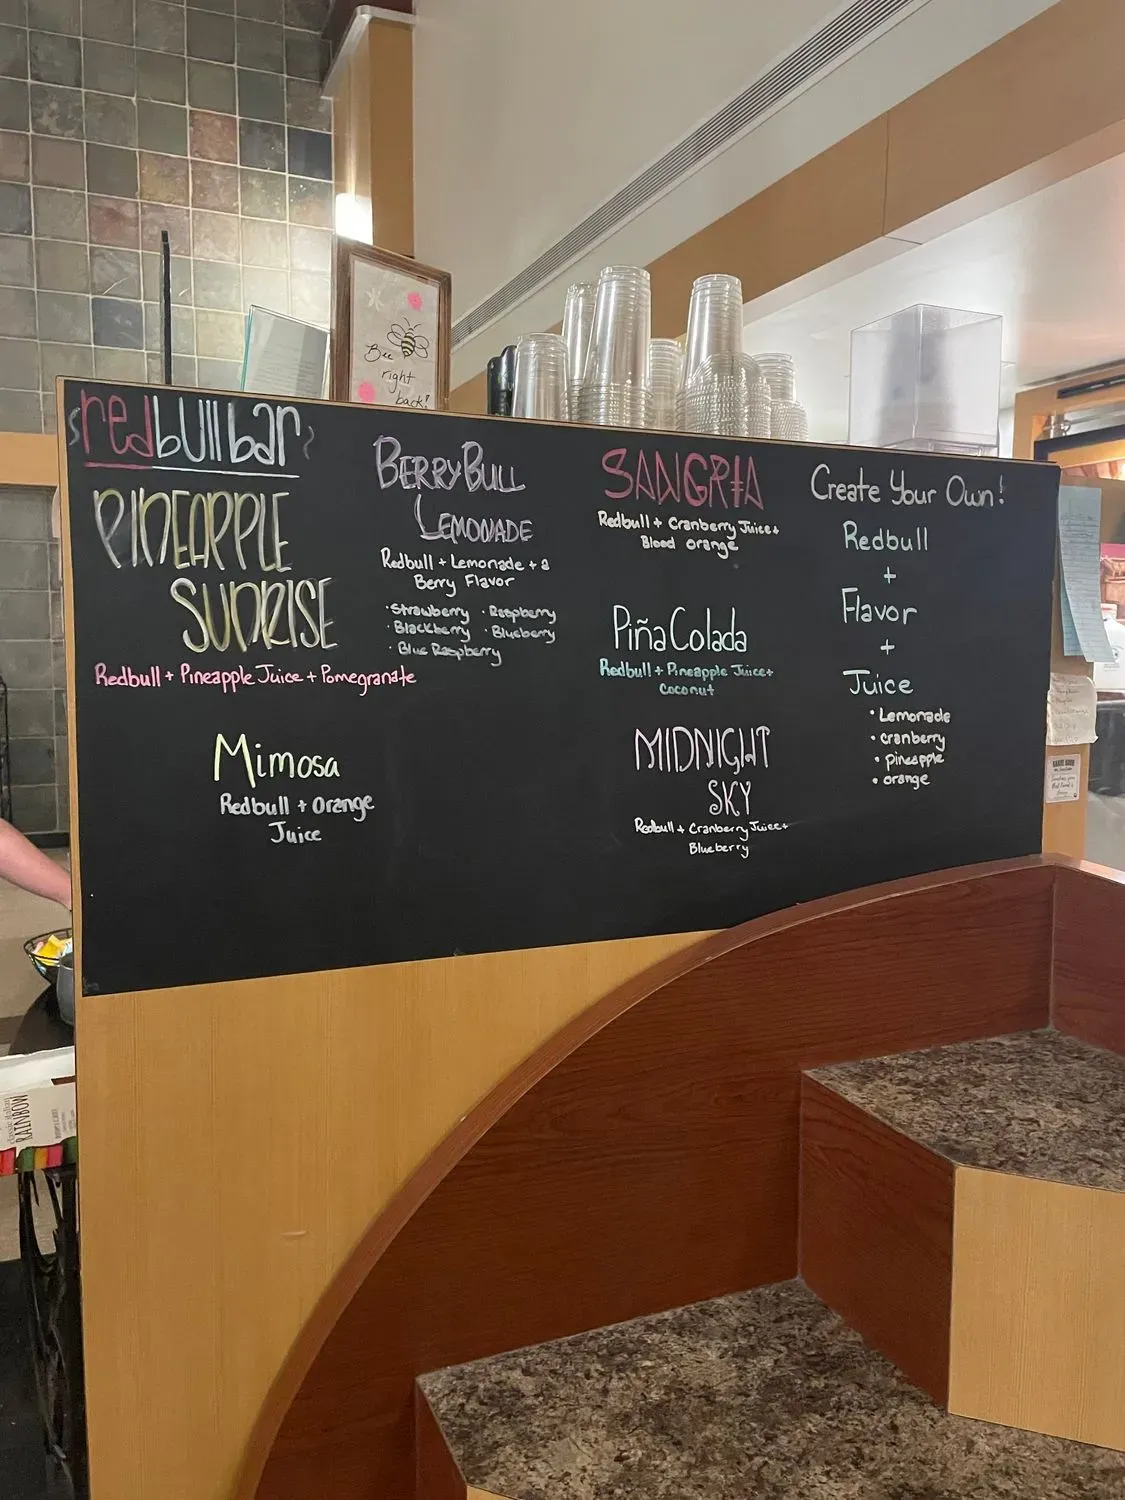 Bee
right
back!
redbull bar
PINEAPPLE
SUNRISE
Redbull + Pineapple Juice + Pomegranate
Mimosa
Redbull + Orange
Juice
BERRY BULL
LEMONADE
Redbull + Lemonade + a
Berry Flavor
· Strawberry · Raspberry
· Blackberry · Blueberry
· Blue Raspberry
SANGRIA
Redbull + Cranberry Juice +
Blood orange
Piña Colada
Redbull + Pineapple Juice +
Coconut
MIDNIGHT
SKY
Redbull + Cranberry Juice +
Blueberry
Create Your Own!
Redbull
+
Flavor
+
Juice
· Lemonade
· cranberry
· pineapple
· orange
RAINBOW